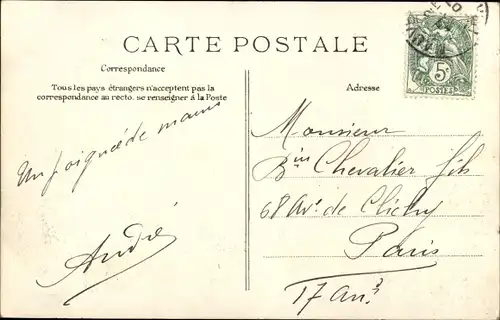 CARTE POSTALE
Correspondance
Tous les pays étrangers n'acceptent pas la
correspondance au recto. se renseigner à la Poste
Adresse
5c
POSTES
Un poignée de mains
André
Monsieur
Bin Chevalier fils
68 Av. de Clichy
Paris
17 Arr.